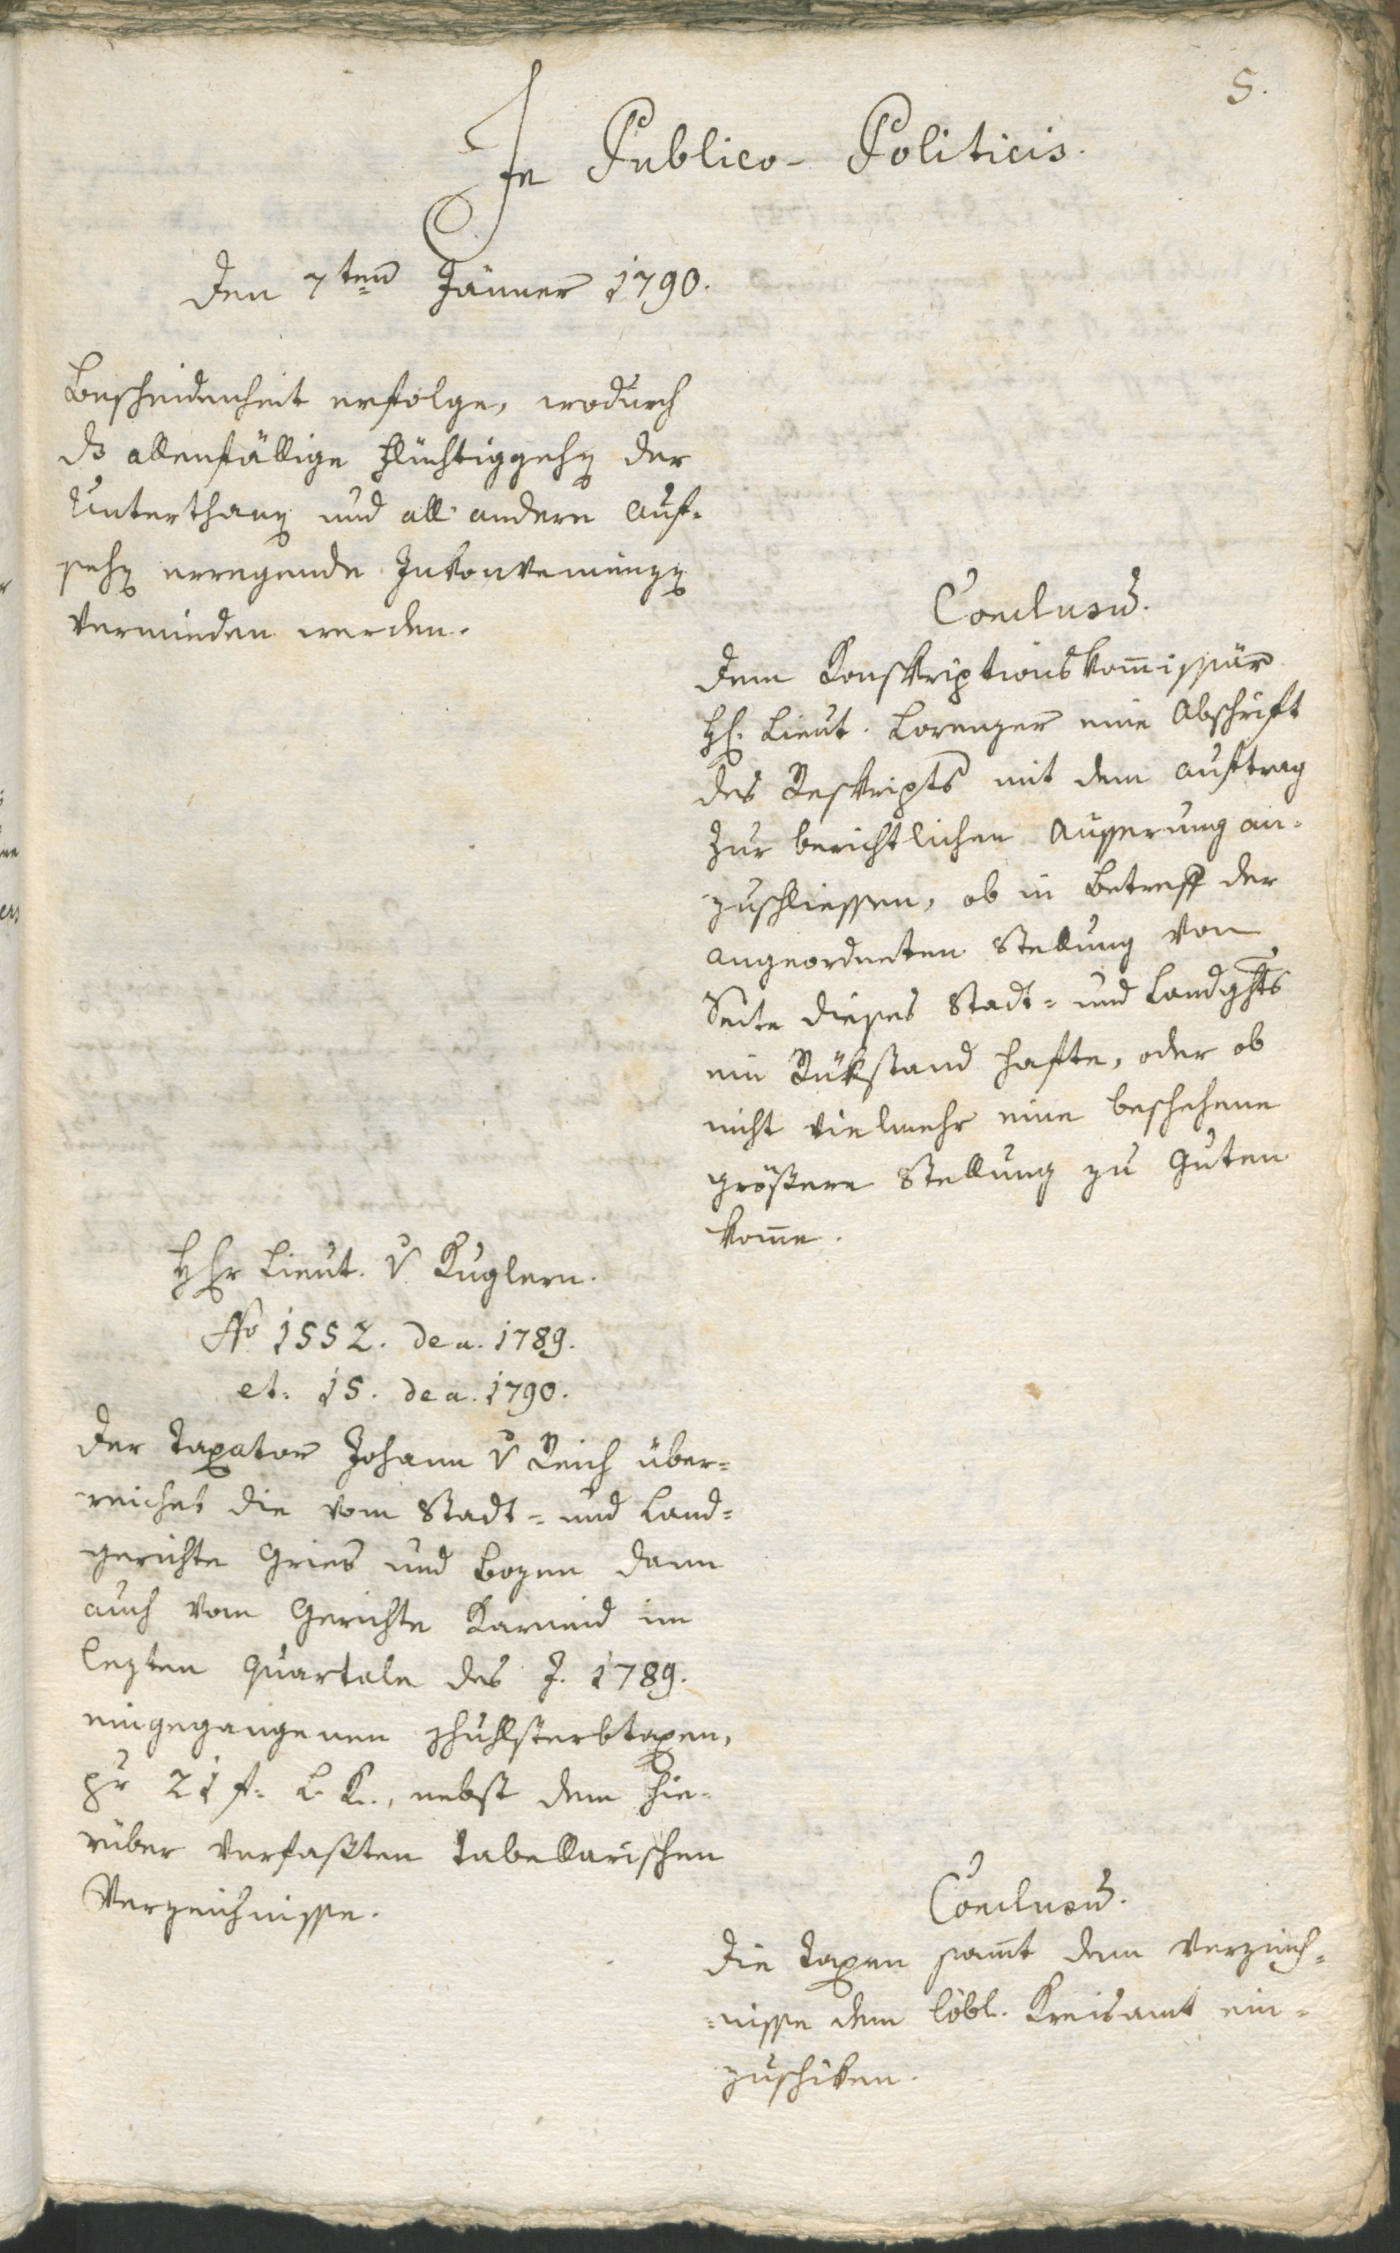 5.
In Publico-Politicis.
Den 7ten Jänner 1790.
Bescheidenheit erfolge, wodurch
ds allenfällige Flüchtiggehen der
Unterthanen und all andere Auf-
sehen erregende Inkonvenienzen
vermieden werden.
Conclusum.
Dem Konskriptionskommissär
H. Lieut. Lorenzer eine Abschrift
des Reskripts mit dem Auftrag
zur berichtlichen Äusserung an-
zuschliessen, ob in Betreff der
angeordneten Stellung von
Seite dieses Stadt- und Landghts
ein Rükstand hafte, oder ob
nicht vielmehr eine beschehene
größere Stellung zu Guten
komme.
Hr Lieut. v Kuglern.
No 1552. de a. 1789.
et. 15. de a. 1790.
Der Taxator Johann v Reich über-
reichet die vom Stadt- und Land-
gerichte Gries und Bozen dann
auch vom Gerichte Karneid im
lezten Quartale des J. 1789.
eingegangenen Schulsterbtaxen,
pr 21 f. L. K., nebst dem hie-
rüber verfaßten tabellarischen
Verzeichnisse.
Conclusum.
Die Taxen samt dem Verzeich-
-nisse dem löbl. Kreisamt ein-
zuschiken.